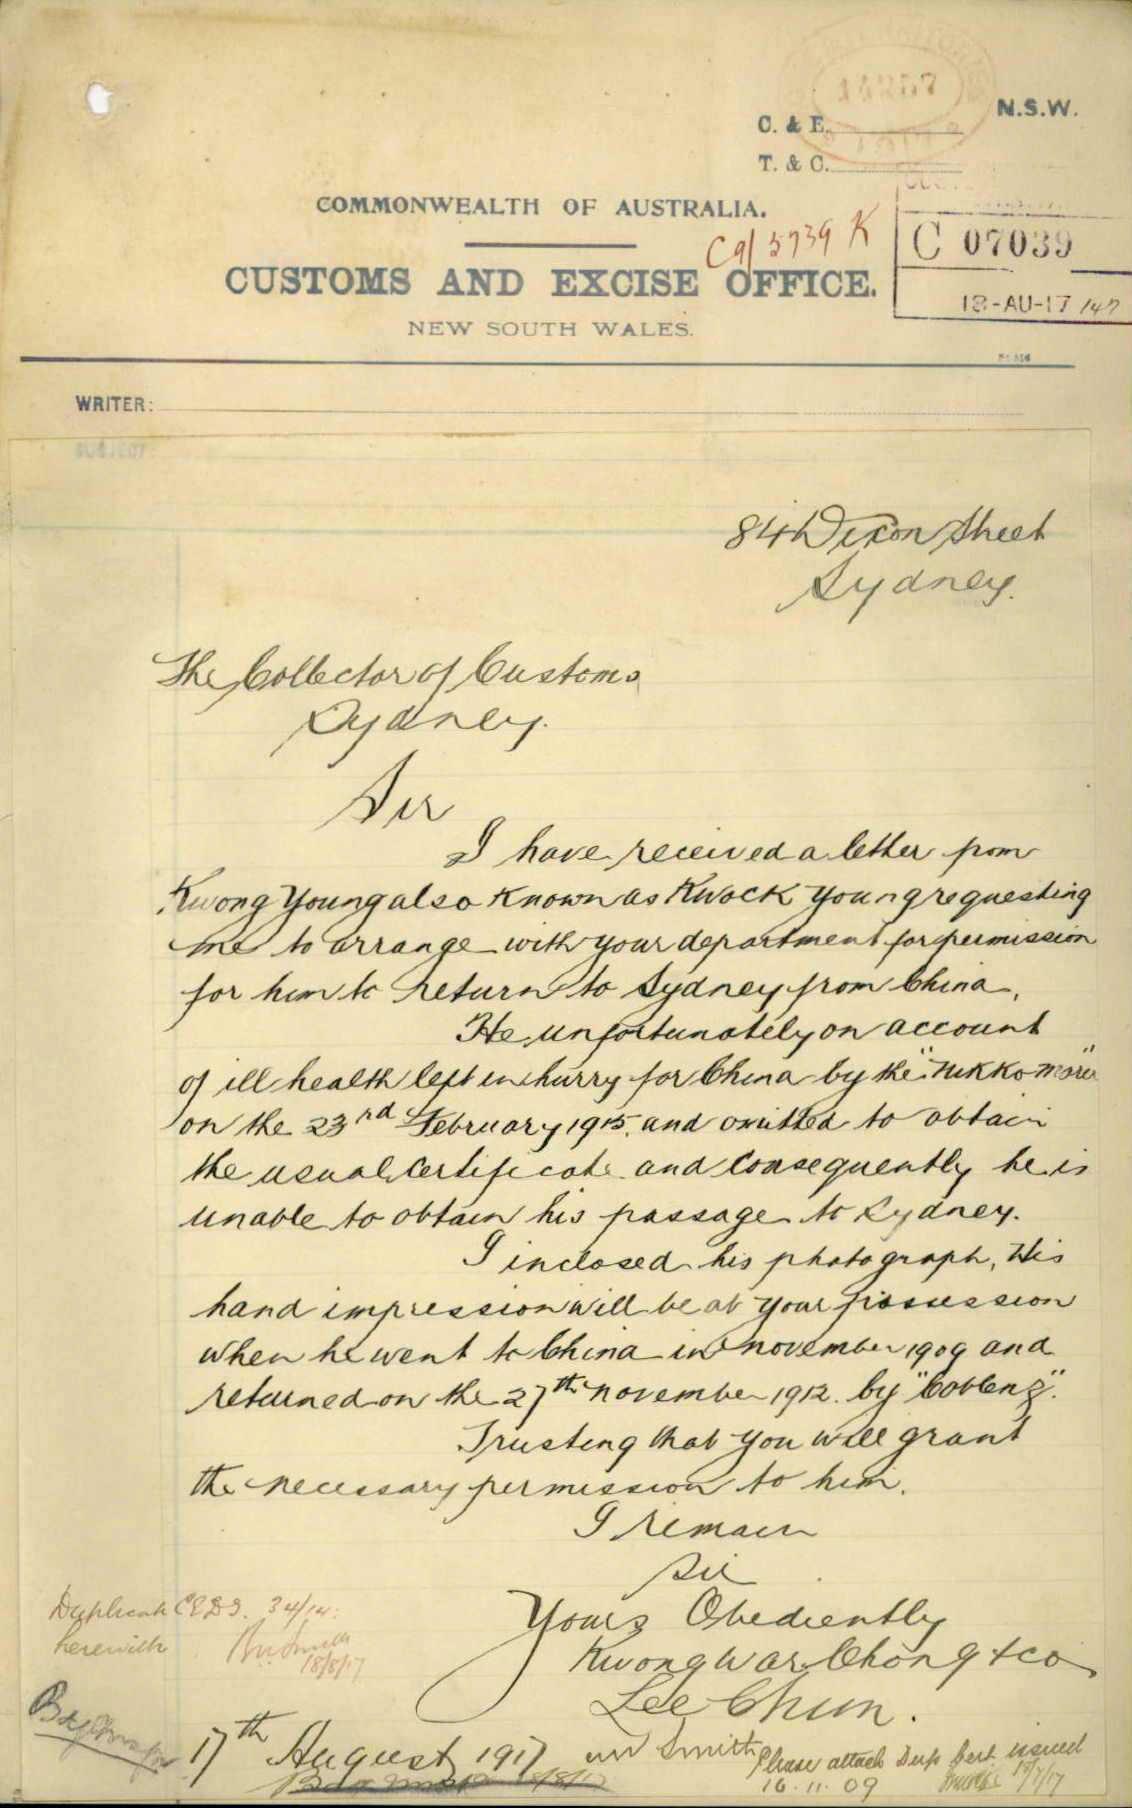 N.S.W.
C. & E.
T. & C.
COMMONWEALTH OF AUSTRALIA.
C9/3739 K
C 07039
CUSTOMS AND EXCISE OFFICE.
18-AU-17 147
NEW SOUTH WALES.
WRITER:
SUBJECT
84 Dixon Street
Sydney.
The Collector of Customs
Sydney.
Sir
I have received a letter from
Kwong Young also known as Kwock Young requesting
me to arrange with your department for permission
for him to return to Sydney from China.
He unfortunately on account
of ill health left in hurry for China by the "Nikko Maru"
on the 23rd February 1915. and omitted to obtain
the usual certificate and consequently he is
unable to obtain his passage to Sydney.
I inclosed his photograph, His
hand impression will be at your possession
when he went to China in November 1909 and
returned on the 27th November 1912. by "Coblenz".
Trusting that you will grant
the necessary permission to him.
I remain
Sir
Yours Obediently
Kwong War Chong & Co
Lee Chun.
Duplicate CEDT. 34/14:
herewith
18/8/17
17th August 1917
Mr Smith
Please attach Dup Cert issued
16.11.09